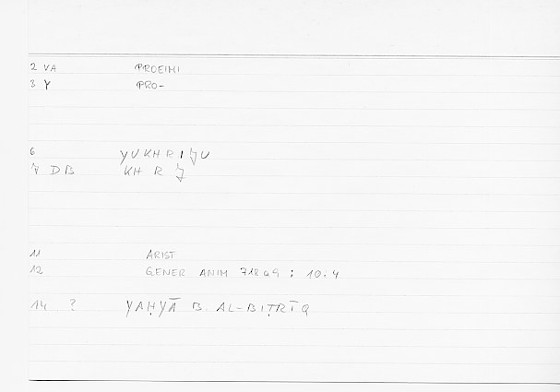 2 VA PROEIMI
3 Y PRO-
6 YUKHRIJU
7 DB KH R J
11 ARIST
12 GENER ANIM 718a9 ; 10.4
14 ? YAḤYĀ B. AL-BIṬRĪQ